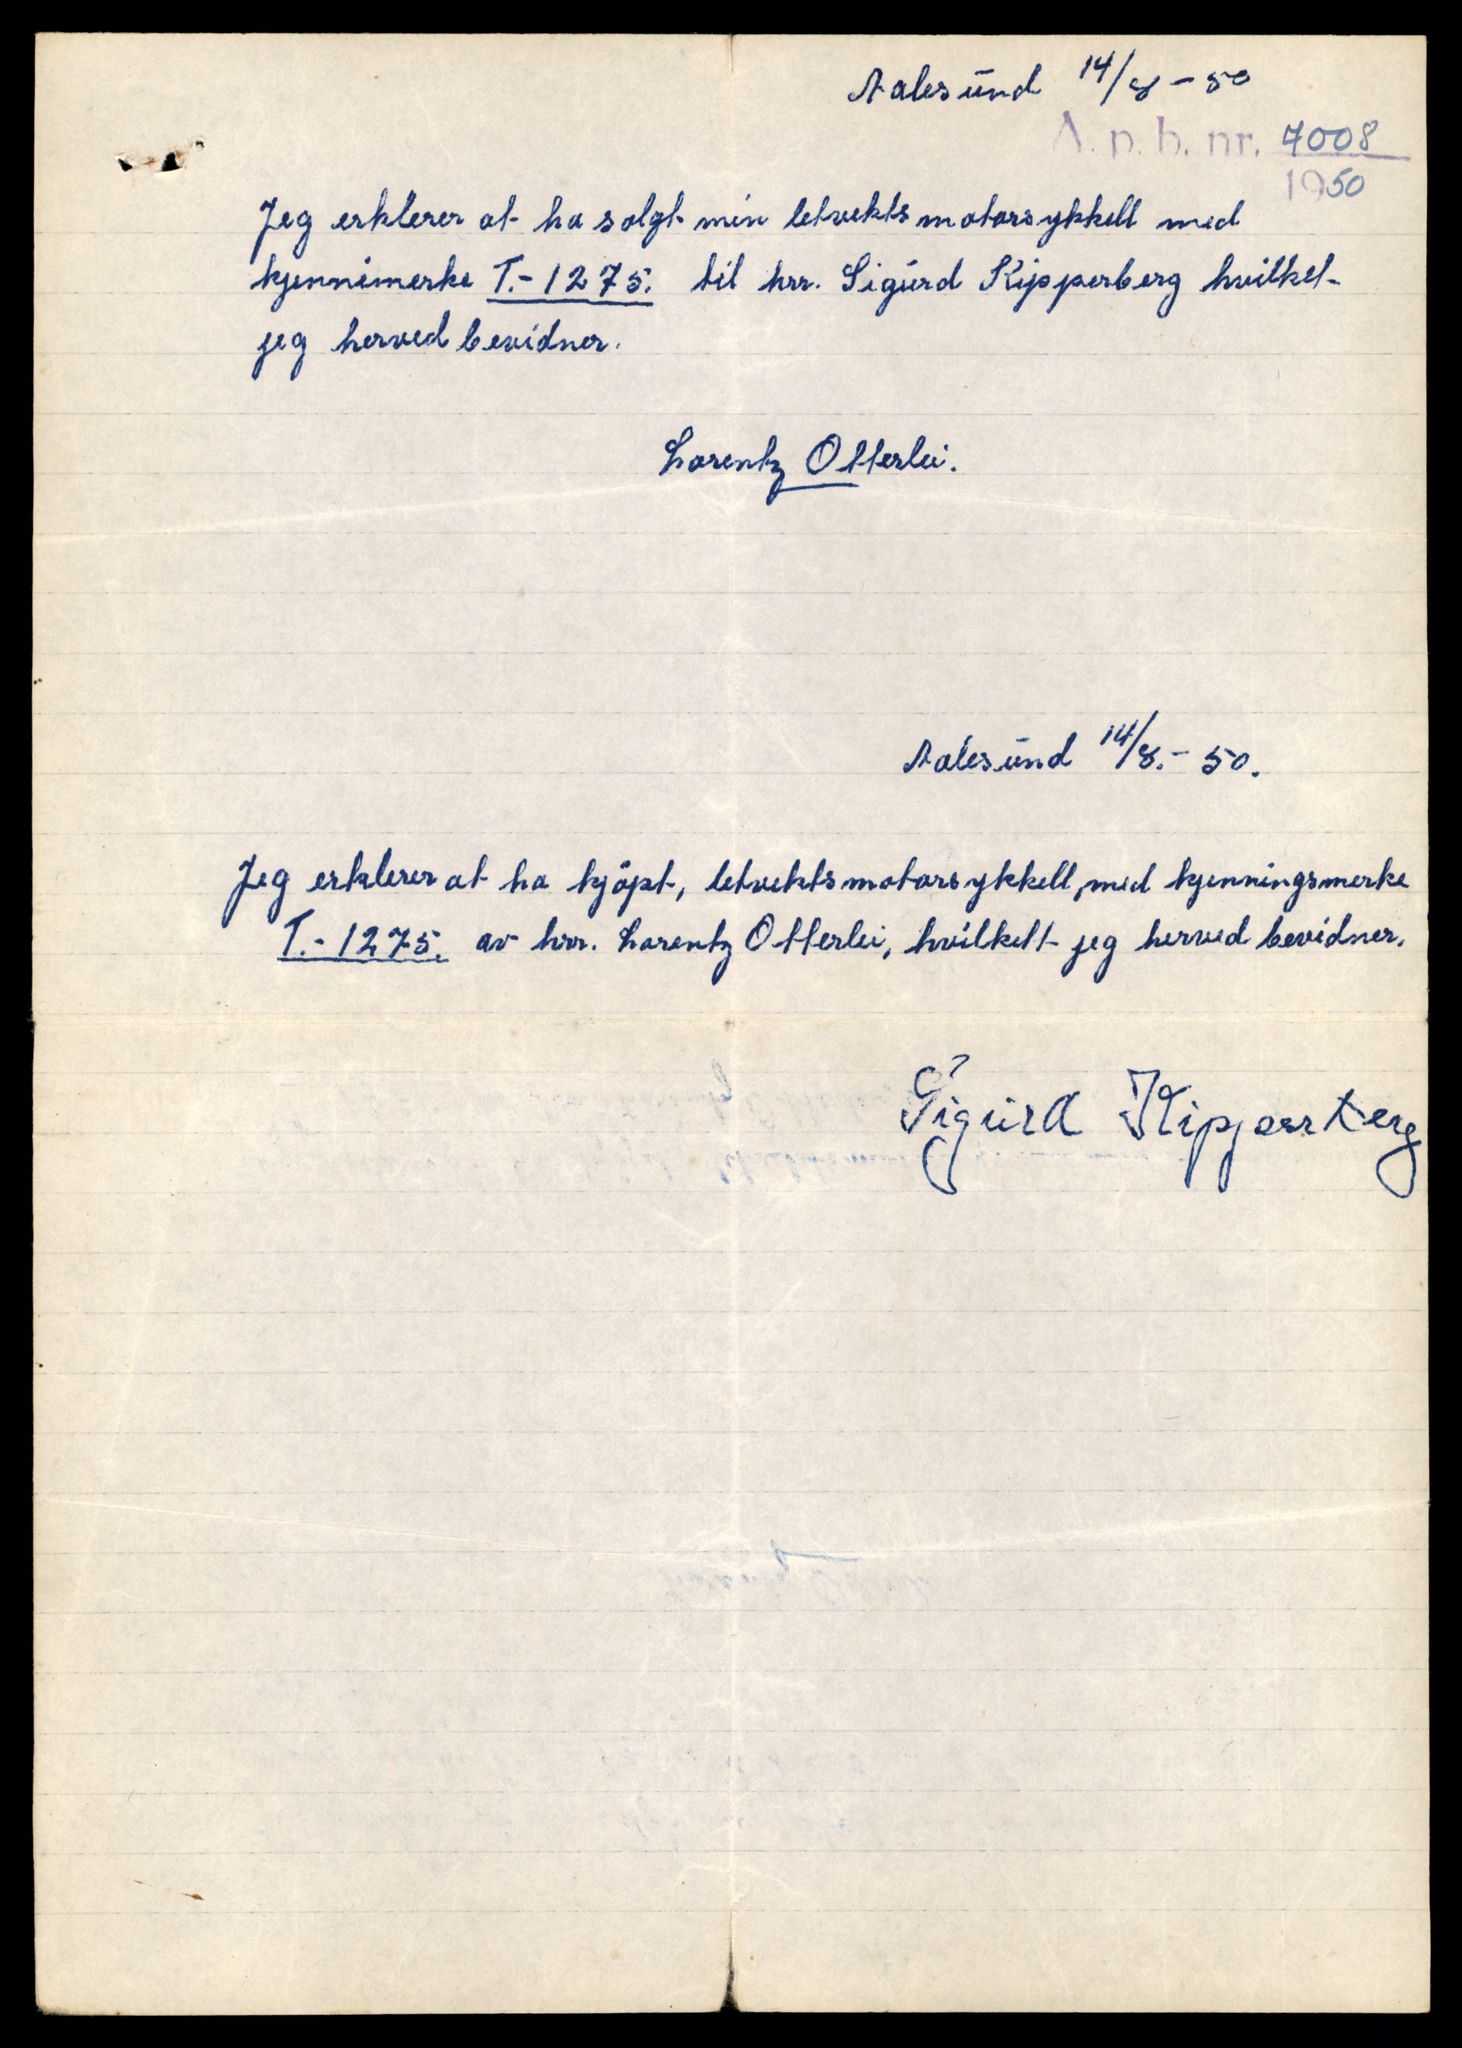 Aalesund 14/8 - 50
A. p. b. nr. 7008
1950
Jeg erklerer at ha solgt min letvektsmotorsykkell med
kjennimerke T.- 1275. til hrr. Sigurd Kipperberg hvilket
jeg herved bevidner.
Lorentz Otterlei.
Aalesund 14/8. - 50.
Jeg erklerer at ha kjöpt, letvektsmotorsykkell, med kjenningsmerke
T.- 1275. av hrr. Lorentz Otterlei, hvilkelt jeg herved bevidner.
Sigurd Kipperberg